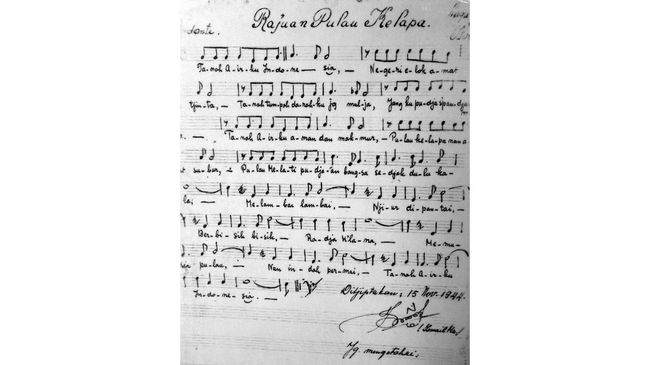 Rajuan Pulau Kelapa.
dante.
Ta-noh A-ir-ku In-do-ne-sia, — Ne-ge-ri e-lok a-mat
tjin-ta, — Ta-noh tum-poh da-rah-ku jg mul-ja, Jang ku pu-dja span-dja
— Ta-noh A-ir-ku a-man dan mak-mur, — Pu-lau ke-la-pa nan a
su-bur, — Pu-lau Me-la-ti pu-dja-an bang-sa se-djak du-lu ka-
la; — Me-lam-bai lam-bai, — Nji-ur di-pan-tai, —
Ber-bi-sik bi-sik, — Ra-dja K'la-na, — Me-mu-
pu-lau, — Nan in-dah per-mai, — Ta-noh A-ir-ku
In-do-ne-sia. —
Ditjiptakan: 15 Nov. 1944.
Jg. mengetahui;